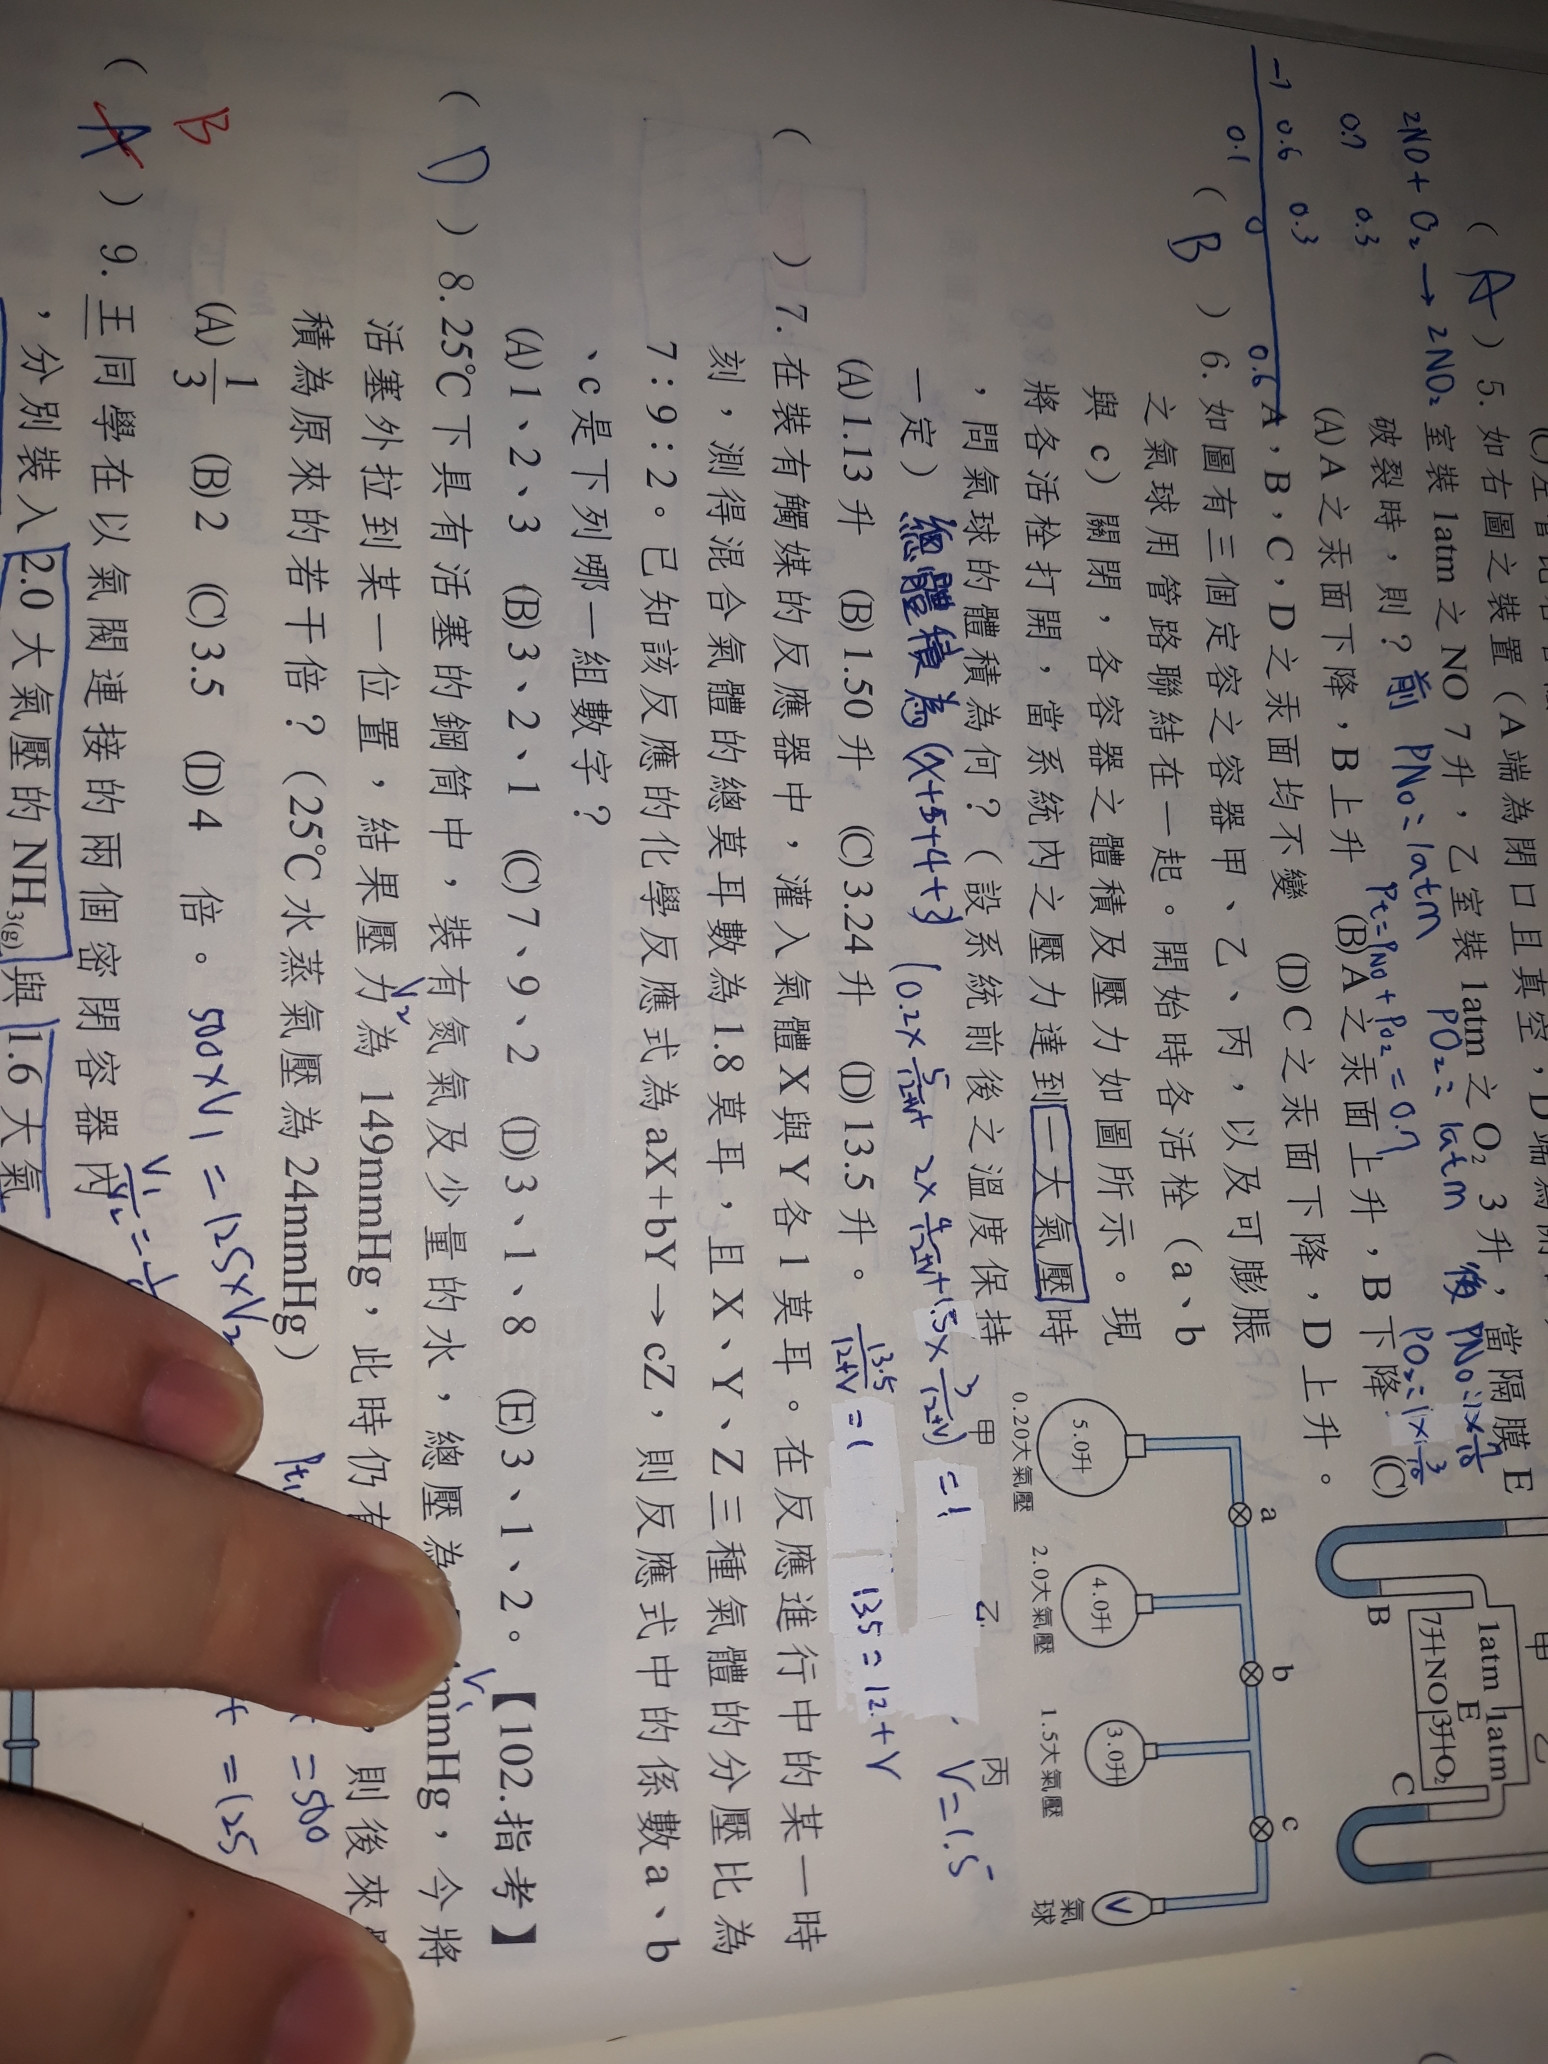 ( A ) 5. 如右圖之裝置(A端為閉口且真空,D端為開
2NO + O₂ → 2NO₂ 室裝 1atm 之 NO 7升,乙室裝 1atm 之 O₂ 3升,當隔膜E
0.7 0.3
破裂時,則?
前 PNO = 1atm PO₂ = 1atm
後 PNO = 1×7/10 PO₂ = 1×3/10
Pt = PNO + PO₂ = 0.7
-) 0.6 0.3
0.1 0 0.6
(A)A之汞面下降,B上升 (B)A之汞面上升,B下降 (C)
A,B,C,D之汞面均不變 (D)C之汞面下降,D上升。
甲 乙
1atm 1atm
E
7升NO 3升O₂
B C
( B ) 6. 如圖有三個定容之容器甲、乙、丙,以及可膨脹
之氣球用管路聯結在一起。開始時各活栓(a、b
與c)關閉,各容器之體積及壓力如圖所示。現
將各活栓打開,當系統內之壓力達到一大氣壓時
,問氣球的體積為何?(設系統前後之溫度保持
一定)
總體積為 (x+5+4+3)
(0.2×5/12+V + 2×4/12+V + 1.5×3/12+V) = 1
13.5/12+V = 1 13.5 = 12+V V = 1.5
(A)1.13升 (B)1.50升 (C)3.24升 (D)13.5升。
a b c
5.0升 4.0升 3.0升 V
0.20大氣壓 2.0大氣壓 1.5大氣壓 氣球
甲 乙 丙
( ) 7. 在裝有觸媒的反應器中,灌入氣體X與Y各1莫耳。在反應進行中的某一時
刻,測得混合氣體的總莫耳數為1.8莫耳,且X、Y、Z三種氣體的分壓比為
7:9:2。已知該反應的化學反應式為aX+bY→cZ,則反應式中的係數a、b
、c是下列哪一組數字?
(A)1、2、3 (B)3、2、1 (C)7、9、2 (D)3、1、8 (E)3、1、2。【102.指考】
( D ) 8. 25℃下具有活塞的鋼筒中,裝有氮氣及少量的水,總壓為 mmHg,今將
V₁
活塞外拉到某一位置,結果壓力為 149mmHg,此時仍有 ,則後來
V₂
積為原來的若干倍?(25℃水蒸氣壓為 24mmHg)
= 500
(A)1/3 (B)2 (C)3.5 (D)4 倍。
B
500×V₁ = 125×V₂
= 125
( A ) 9. 王同學在以氣閥連接的兩個密閉容器內
,分別裝入 2.0 大氣壓的 NH₃(g) 與 1.6 大氣